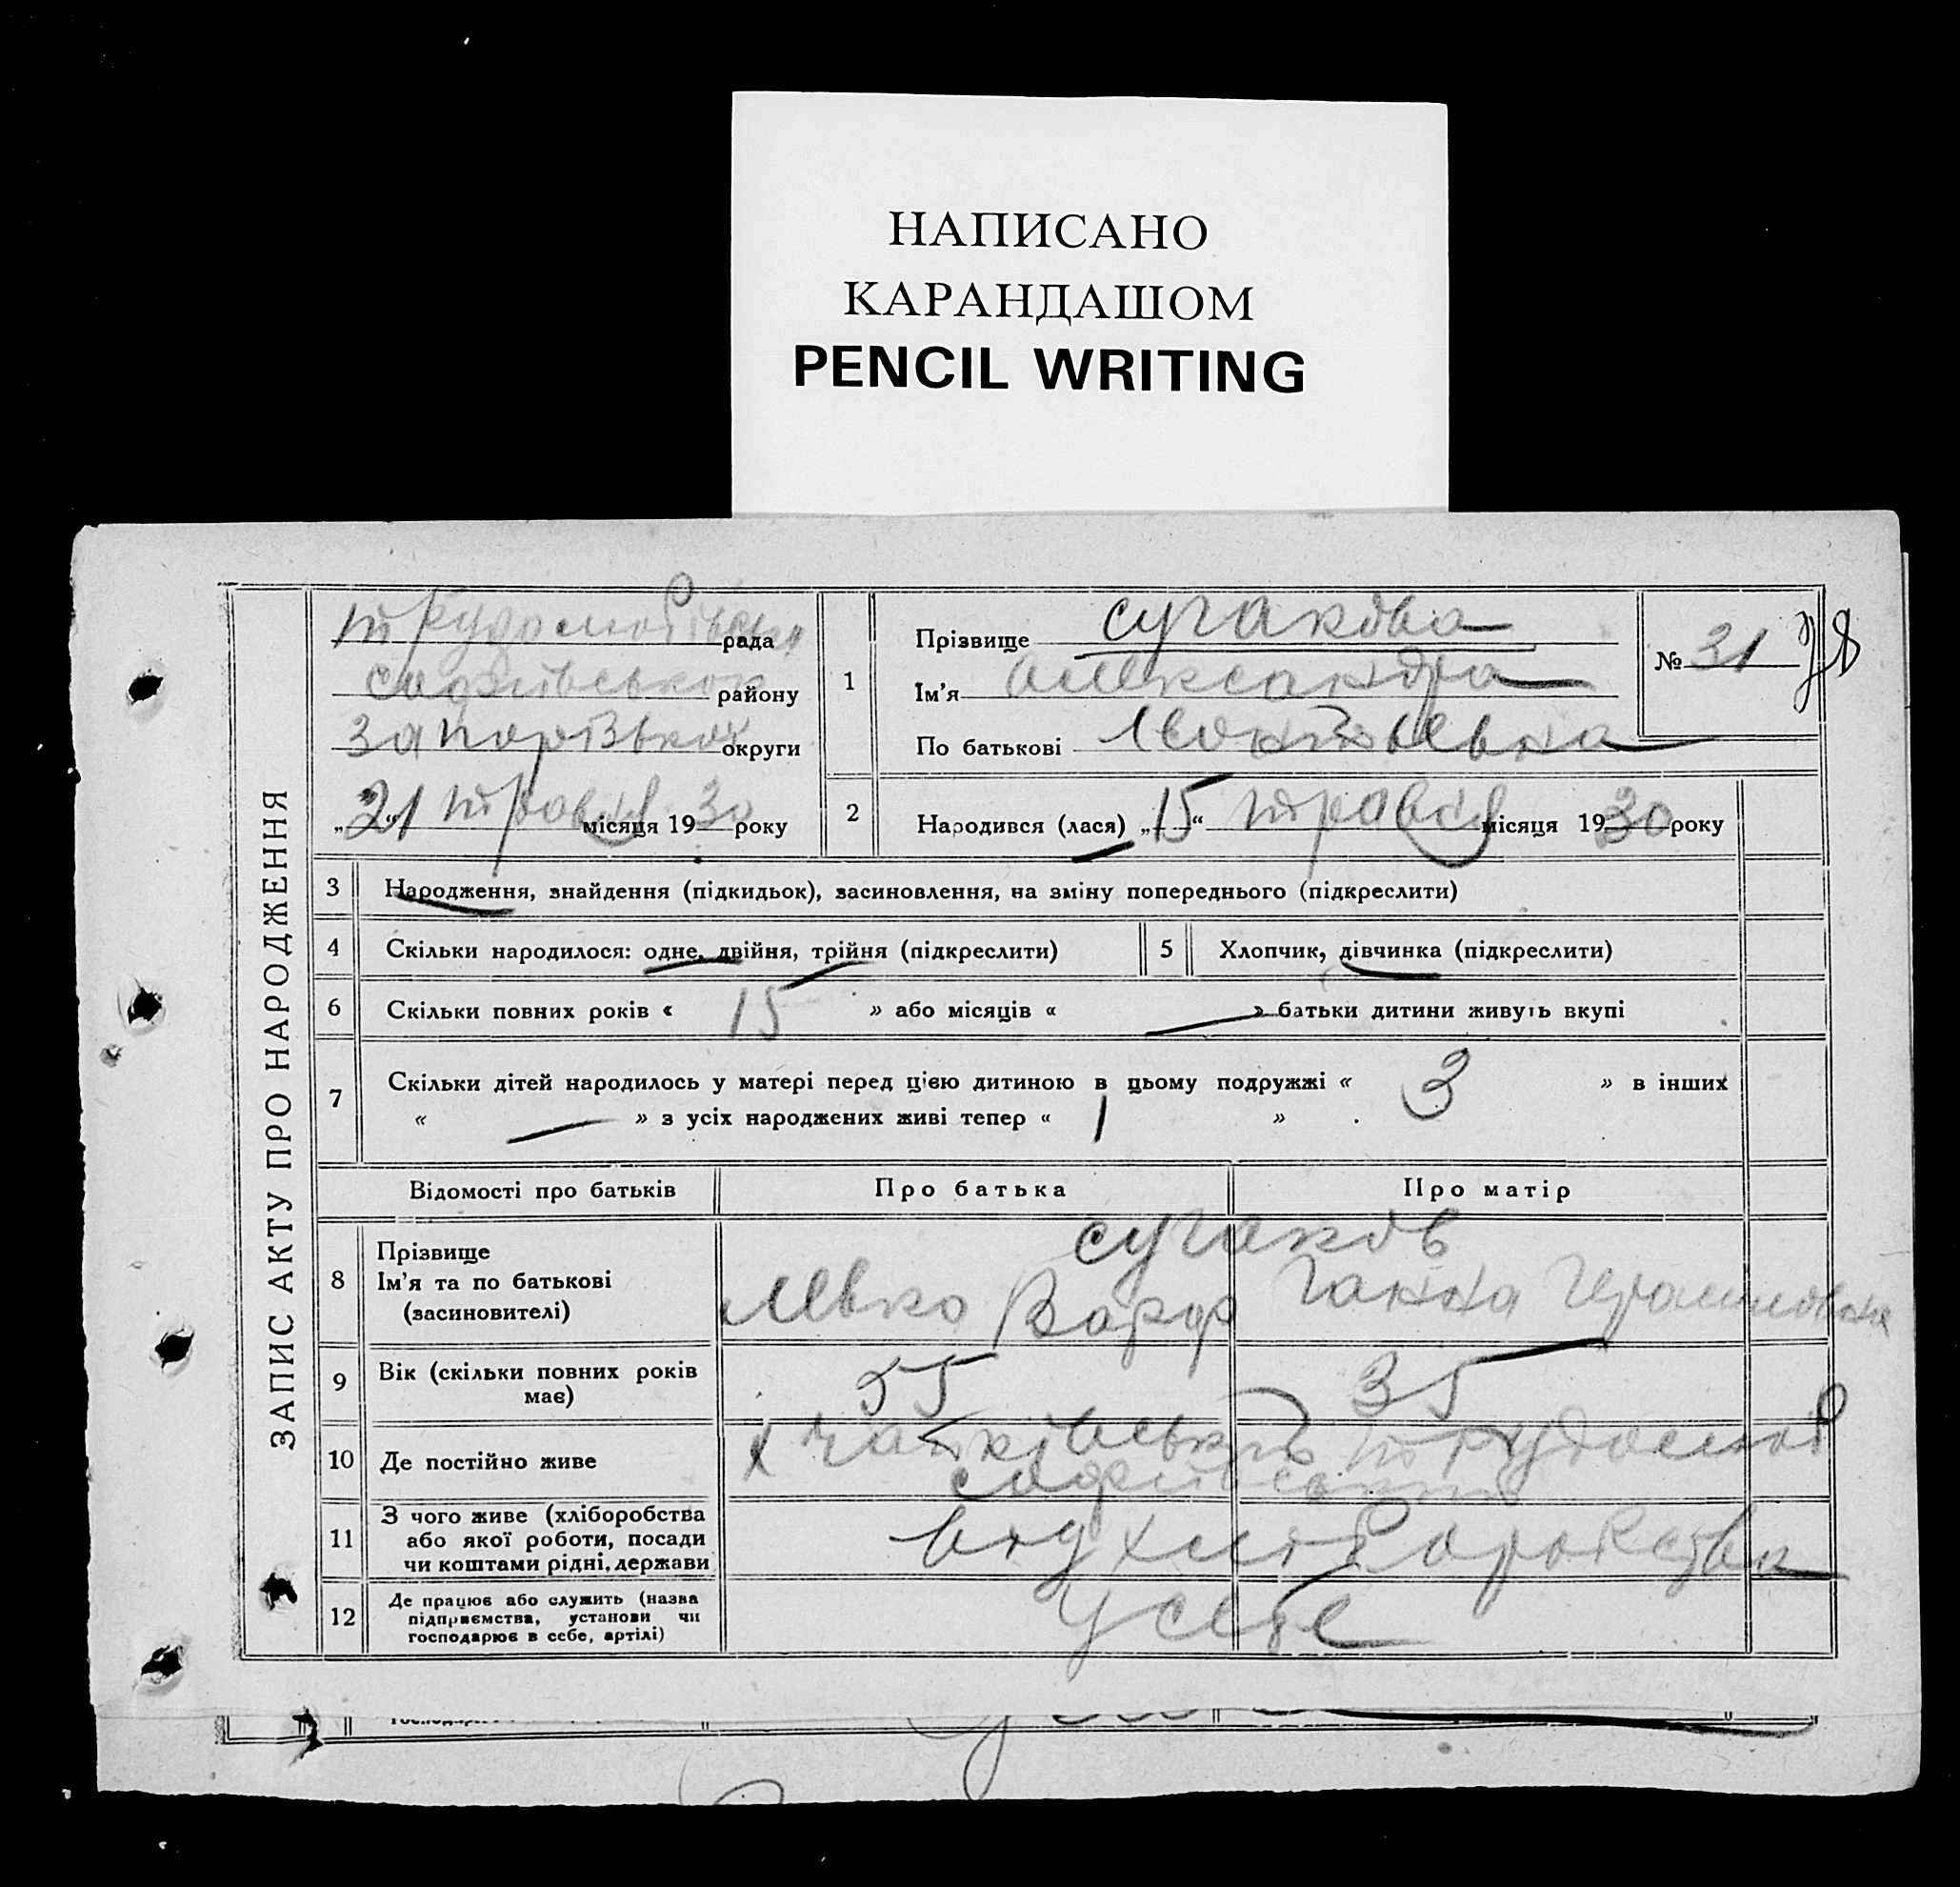 НАПИСАНО
КАРАНДАШОМ
PENCIL WRITING
ЗАПИС АКТУ ПРО НАРОДЖЕННЯ
рада
Софіївської району
Запорізької округи
„21“ травня місяця 1930 року
1
Прізвище Сугакова
Ім'я Александра
По батькові Леонтьевна
№ 31
2
Народився (лася) „15“ травня місяця 1930 року
3 Народження, знайдення (підкидьок), засиновлення, на зміну попереднього (підкреслити)
4 Скільки народилося: одне, двійня, трійня (підкреслити)
5 Хлопчик, дівчинка (підкреслити)
6 Скільки повних років « 15 » або місяців « — » батьки дитини живуть вкупі
7 Скільки дітей народилось у матері перед цією дитиною в цьому подружжі « 3 » в інших
« — » з усіх народжених живі тепер « 1 » .
Відомості про батьків Про батька Про матір
8 Прізвище
Ім'я та по батькові
(засиновителі)
Сугаков
Левко Варф Ганна
9 Вік (скільки повних років
має)
55 35
10 Де постійно живе
11 З чого живе (хліборобства
або якої роботи, посади
чи коштами рідні, держави
від хліборобства
12 Де працює або служить (назва
підприємства, установи чи
господарює в себе, артілі)
У себе